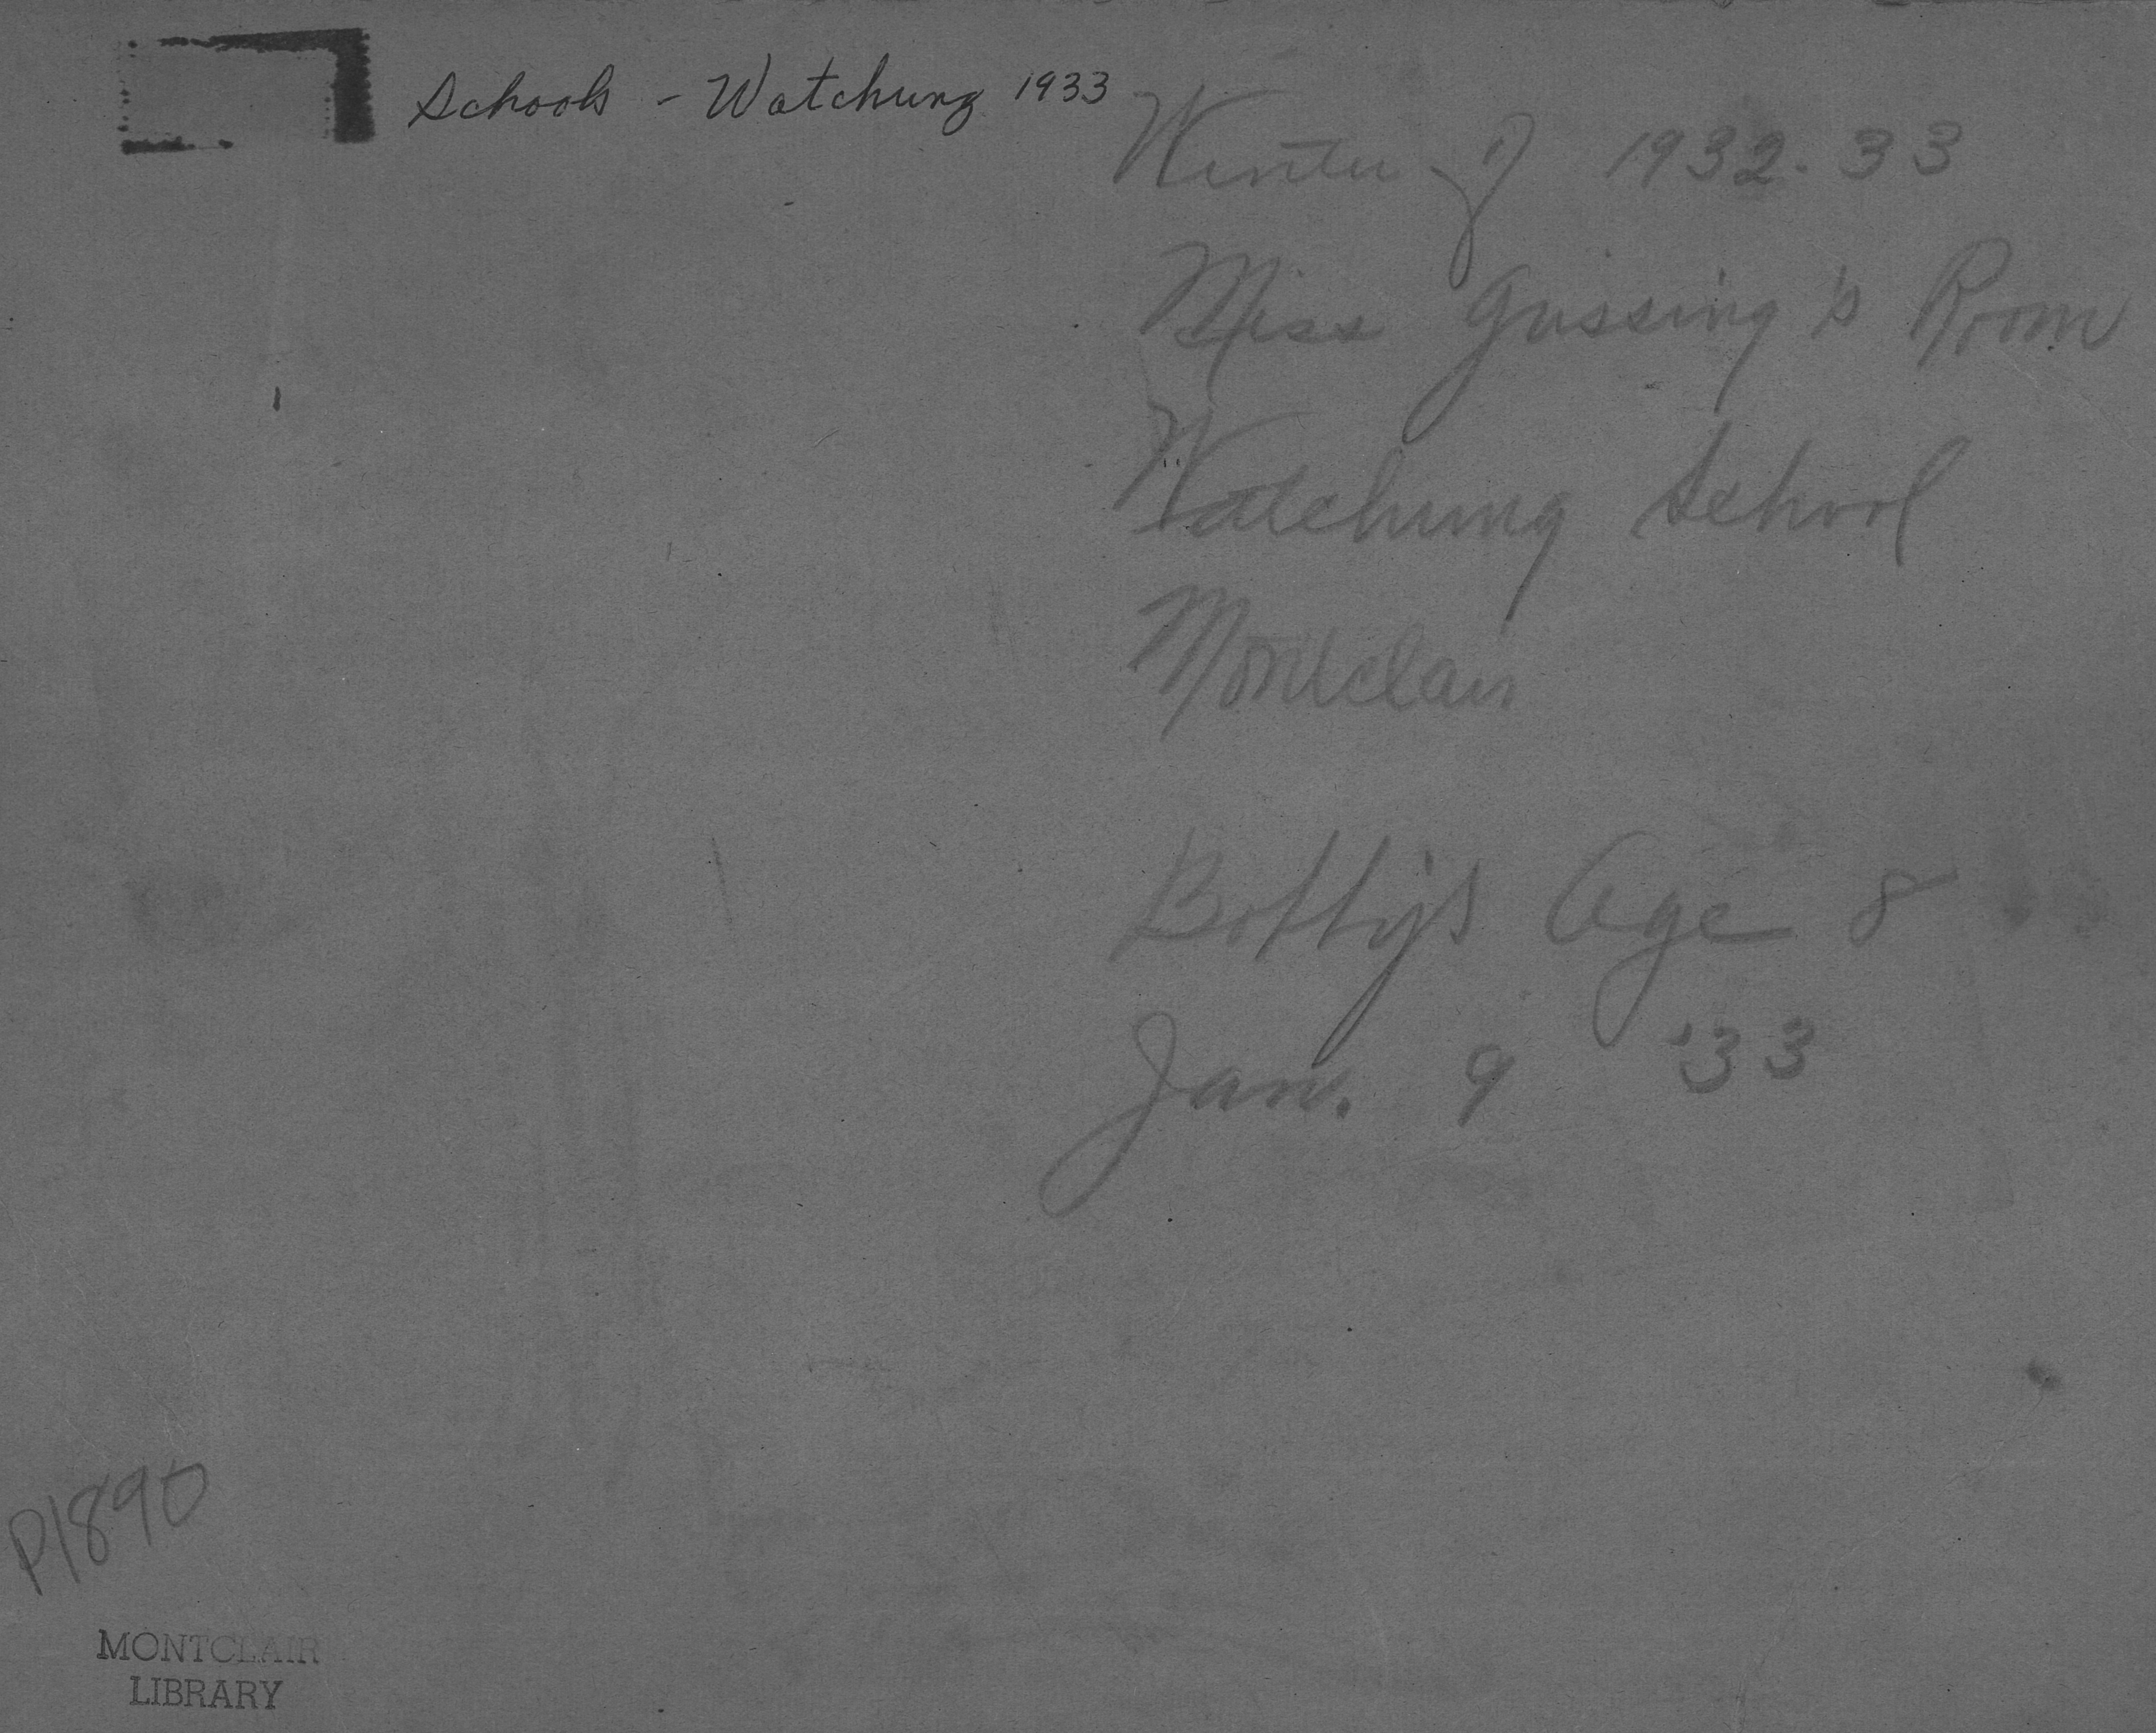 Schools - Watchung 1933
Winter of 1932-33
Miss Gussing's Room
Watchung School
Montclair
Bobby's Age 8
Jan. 9 '33
P1890
MONTCLAIR
LIBRARY